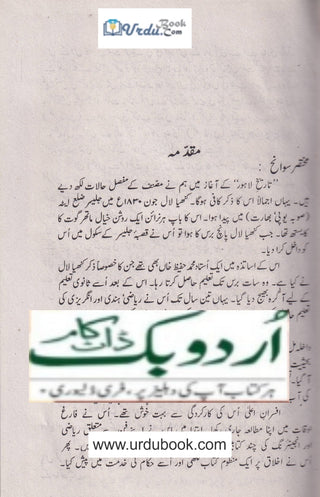 UrduBook.Com
مقدّمہ
مختصر سوانح :
"تاریخ لاہور" کے آغاز میں ہم نے مصنف کے مفصل حالات لکھ دیے
ہیں۔ یہاں اجمالاً اس کا ذکر کافی ہوگا۔ کنھیا لال جون ۱۸۳۰ء میں جلیسر ضلع ایٹہ
(صوبہ یو پی بھارت) میں پیدا ہوا۔ اس کا باپ ہرنرائن ایک روشن خیال ماتھر گوت کا
کایستھ تھا۔ جب کنھیا لال پانچ برس کا ہوا تو اُس نے قصبہ جلیسر کے سکول میں اُس
کو داخل کرا دیا۔
اس کے اساتذہ میں ایک اُستاد محمد حفیظ خاں بھی تھے جن کا خصوصاً ذکر کنھیا لال
نے کیا ہے۔ وہ سات برس تک تعلیم حاصل کرتا رہا۔ اس کے بعد اُسے ثانوی تعلیم
کے لیے آگرہ بھیج دیا گیا۔ یہاں تین سال تک اُس نے ریاضی ہندی اور انگریزی کی
تعلیم
اُردو بک
ڈاٹ کام
ہر کتاب آپ کی دہلیز پر۔ فری ڈلیوری۔
افسرانِ اعلیٰ اُس کی کارکردگی سے بہت خوش تھے۔ اُس نے فارغ
اوقات میں اپنا مطالعہ جاری
www.urdubook.com
اور انجینئرنگ کی چند
اُس نے اخلاق پر ایک منظوم کتاب لکھی اور اُسے حکام کی خدمت میں پیش کیا۔